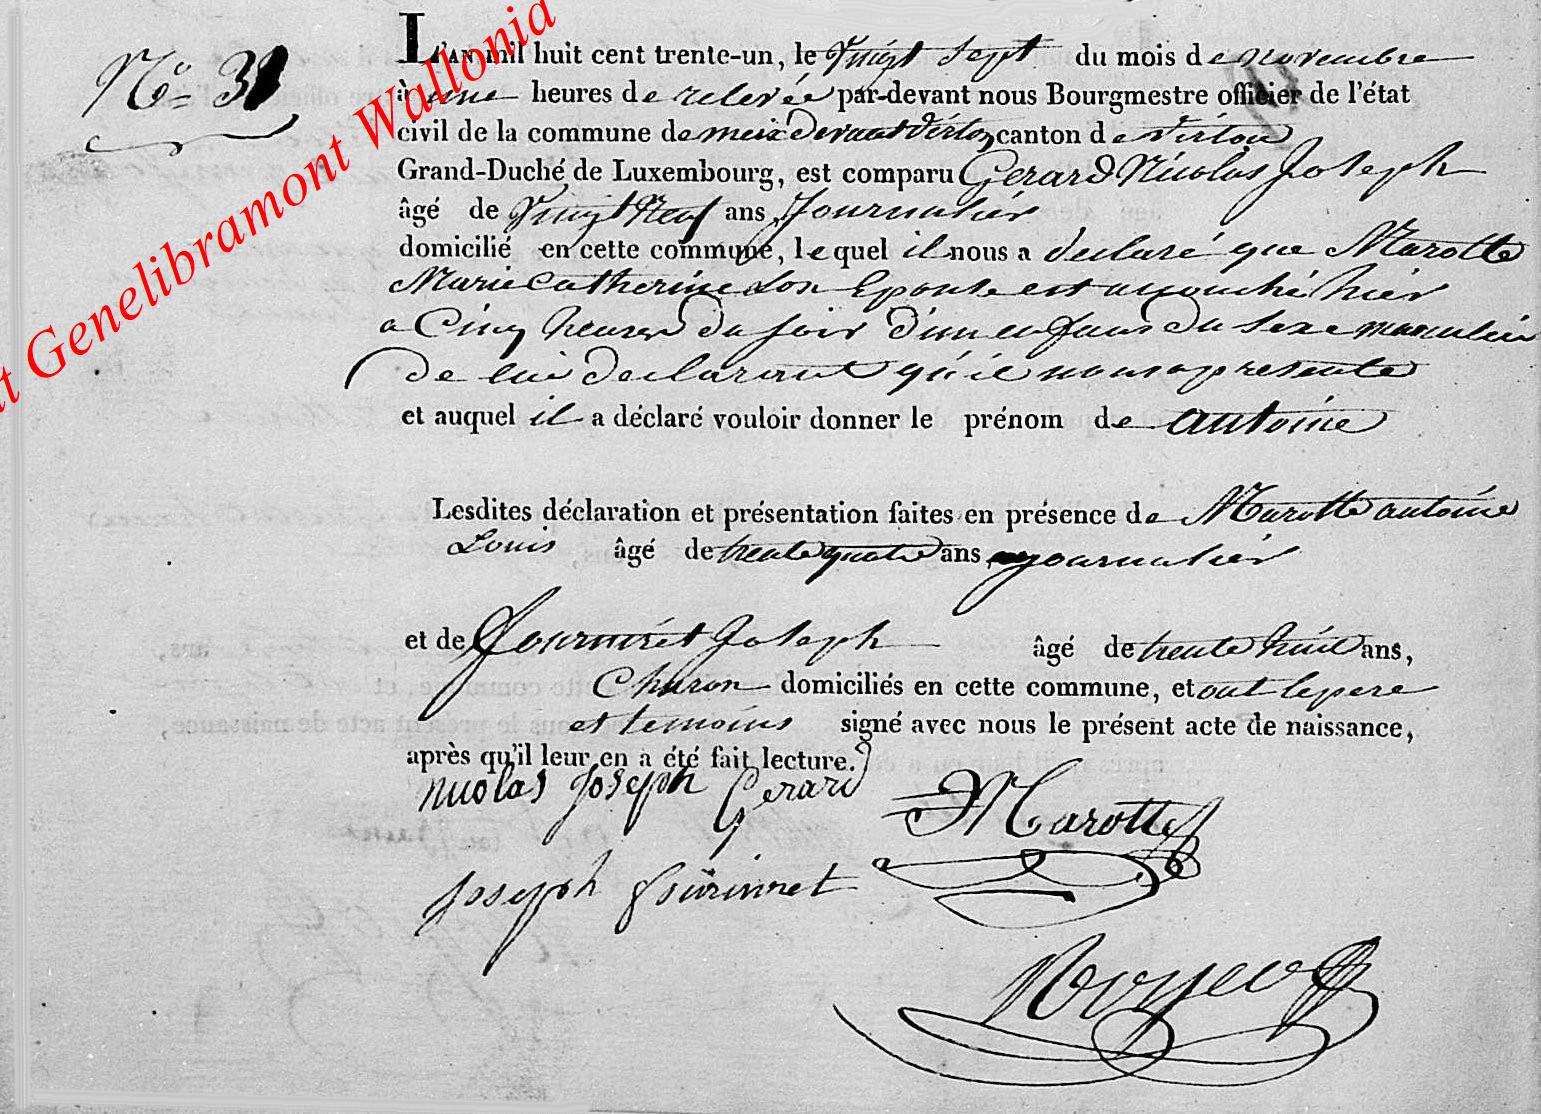 Nº 31
L'AN mil huit cent trente-un, le Vingt Sept du mois de novembre
à une heures de relevée par-devant nous Bourgmestre officier de l'état
civil de la commune de meix devant Virton canton de Virton
Grand-Duché de Luxembourg, est comparu Gerard Nicolas Joseph
âgé de Vingt Neuf ans Journalier
domicilié en cette commune, lequel il nous a declaré que Marotte
Marie Catherine Son Epouse est accouché hier
a Cinq heures du soir d'un enfans du sexe masculin
de lui declarant qu'il nous a presenté
et auquel il a déclaré vouloir donner le prénom de antoine
Lesdites déclaration et présentation faites en présence de Marotte antoine
Louis âgé de trente quatre ans, journalier
et de Fourniret Joseph âgé de trente huit ans,
Charon domiciliés en cette commune, et ont le pere
et temoins signé avec nous le présent acte de naissance,
après qu'il leur en a été fait lecture.
Nicolas Joseph Gerard
Marotte
Joseph Fourniret
t Genelibramont Wallonia